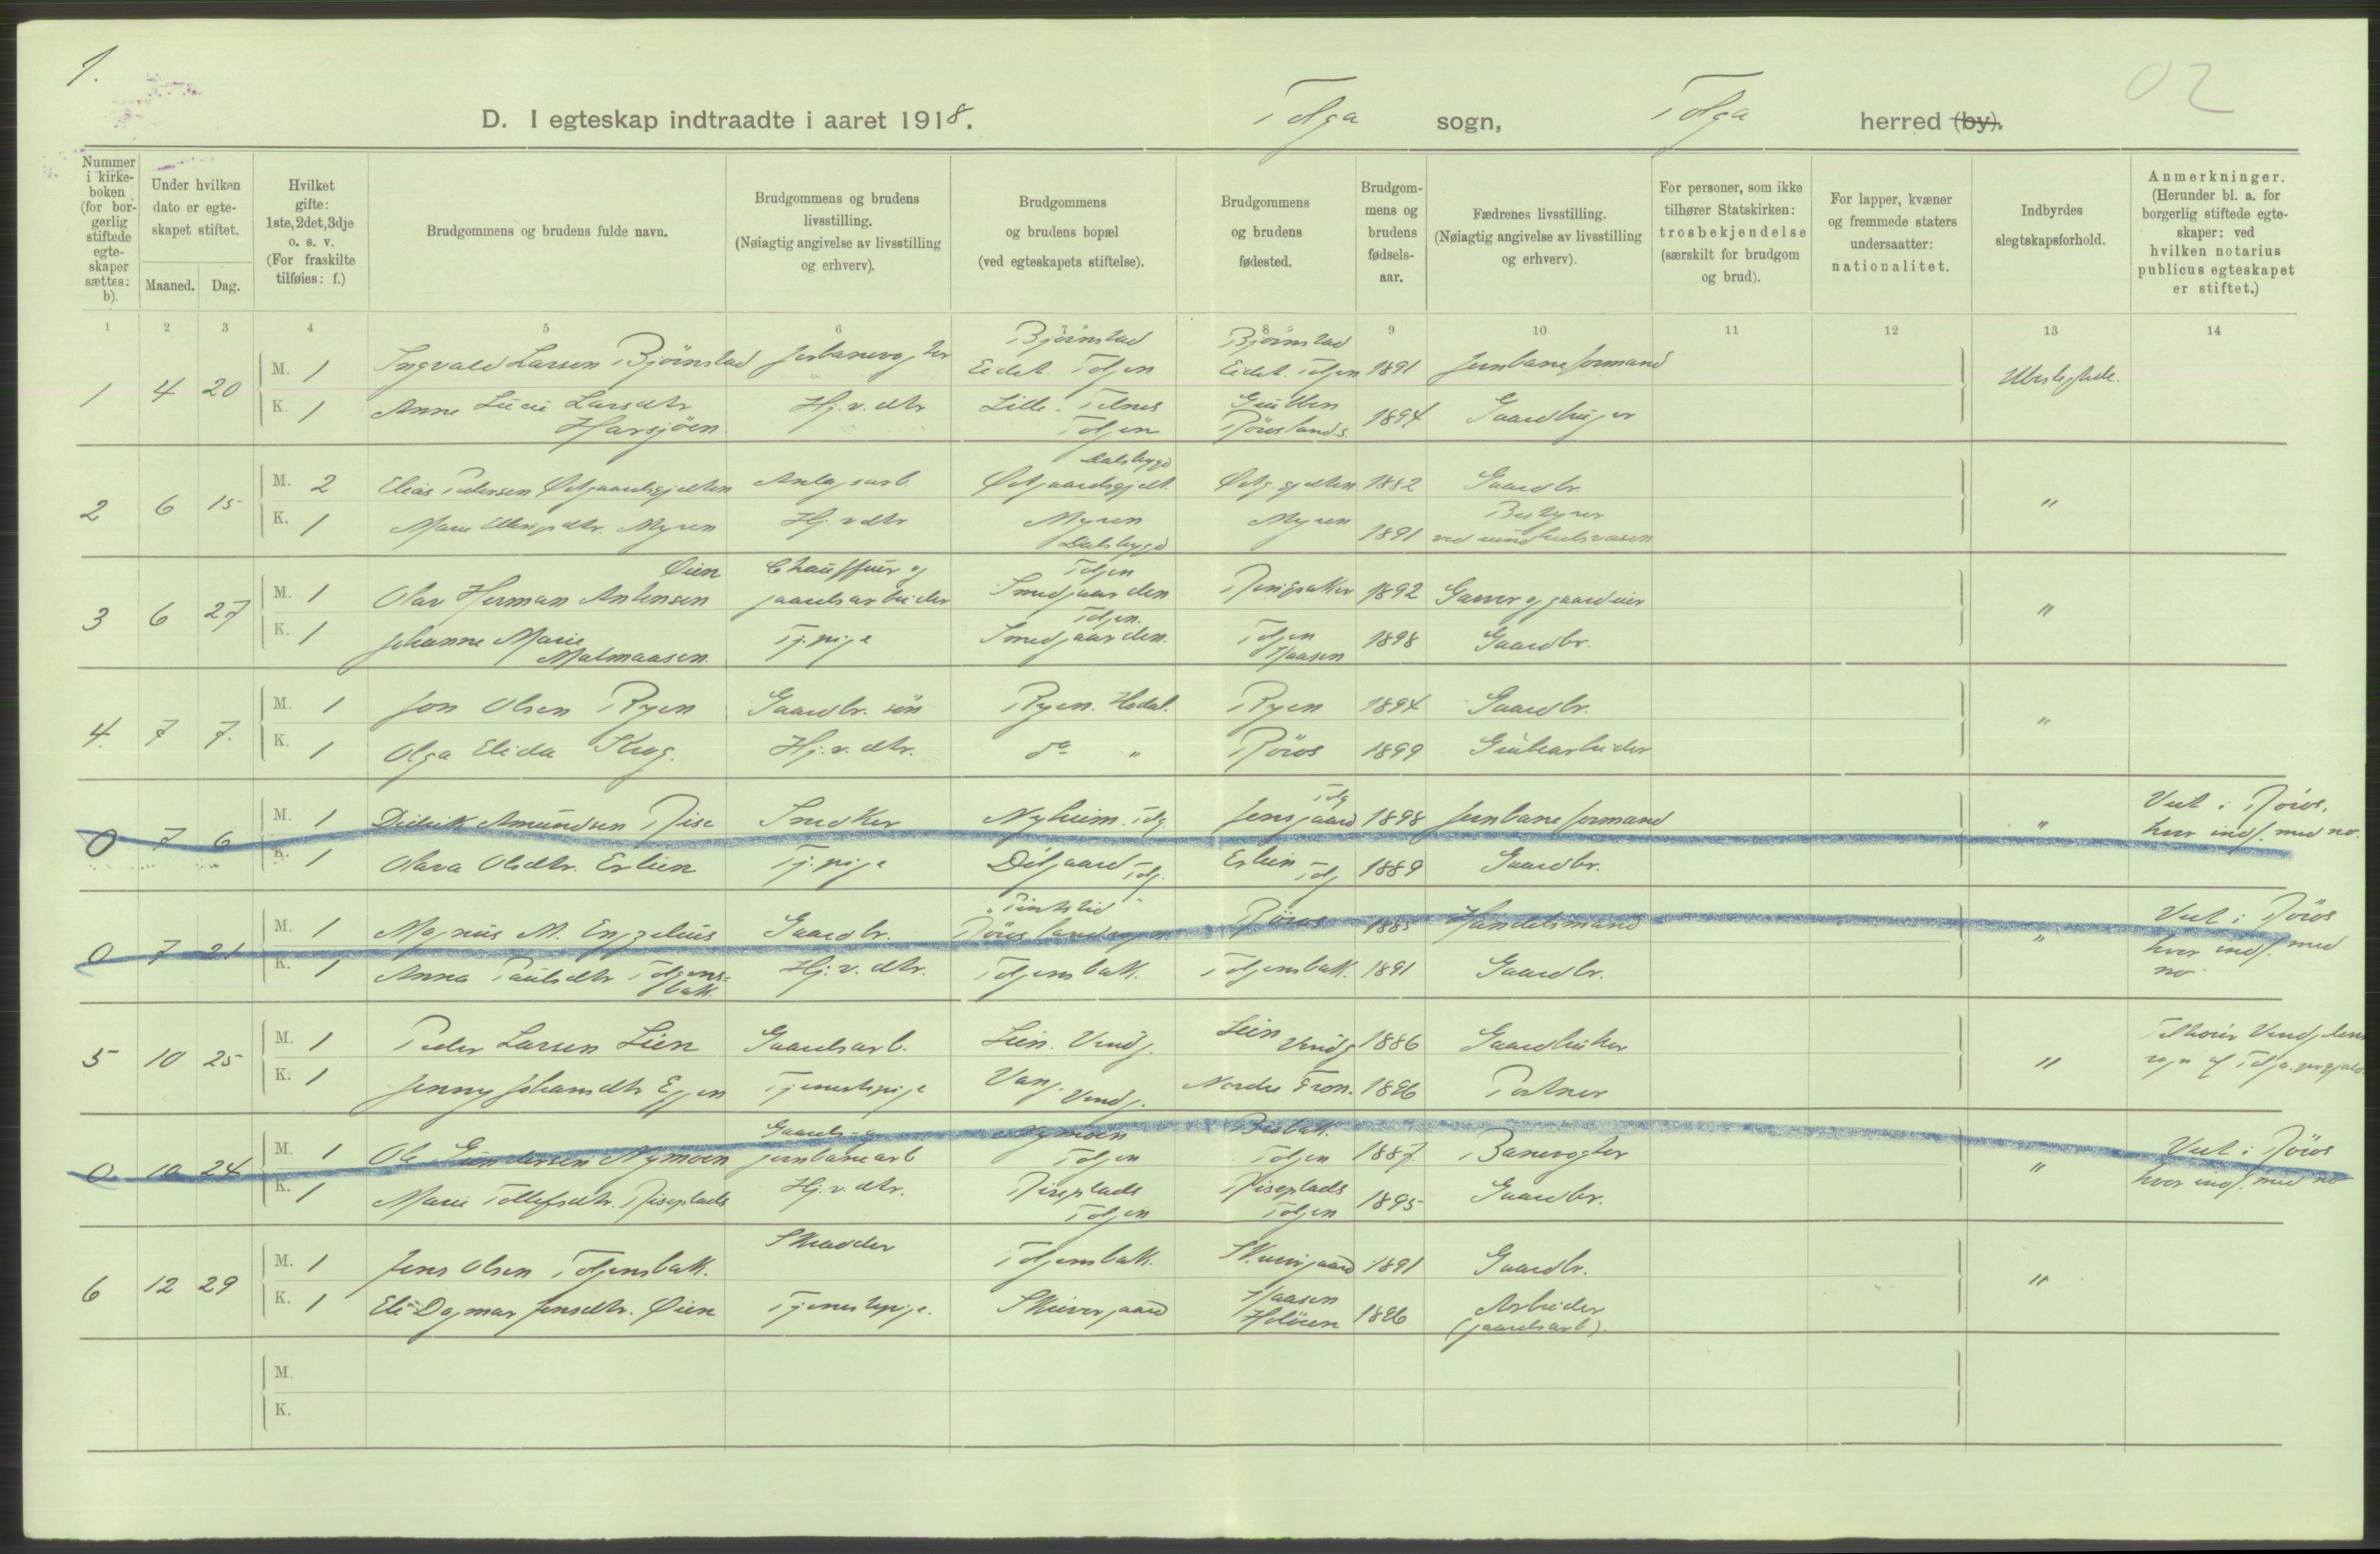 1.
02
D. I egteskap indtraadte i aaret 1918. Tolga sogn, Tolga herred (by).
Nummer i kirkeboken (for borgerlig stiftede egteskaper sættes: b).
Under hvilken dato er egteskapet stiftet.
Maaned. Dag.
Hvilket gifte: 1ste, 2det, 3dje o. s. v. (For fraskilte tilføies: f.)
Brudgommens og brudens fulde navn.
Brudgommens og brudens livsstilling. (Nøiagtig angivelse av livsstilling og erhverv).
Brudgommens og brudens bopæl (ved egteskapets stiftelse).
Brudgommens og brudens fødested.
Brudgommens og brudens fødselsaar.
Fædrenes livsstilling. (Nøiagtig angivelse av livsstilling og erhverv).
For personer, som ikke tilhører Statskirken: trosbekjendelse (særskilt for brudgom og brud).
For lapper, kvæner og fremmede staters undersaatter: nationalitet.
Indbyrdes slegtskapsforhold.
Anmerkninger. (Herunder bl. a. for borgerlig stiftede egteskaper: ved hvilken notarius publicus egteskapet er stiftet.)
1 2 3 4 5 6 7 8 9 10 11 12 13 14
1 4 20 M. 1 Ingvald Larsen Bjørnstad Bjørnstad Eidet. Tolgen Bjørnstad Eidet. Tolgen 1891 Jernbaneformand
K. 1 Anne Lucie Larsdtr Harsjöen Hj. v. dtr Lille-Telnes Tolgen Röros lands. 1894
2 6 15 M. 2 Elias Pedersen Anlægsarb. Dalsbygd 1882 Gaardbr.
K. 1 Marie Myren Hj. v. dtr Myren Dalsbygd Myren 1891 Bestyrer ved
"
3 6 27 M. 1 Olav Herman Antonsen Øien Chauffeur og gaardsarbeider Tolgen Smedgaarden Ringsaker 1892 Garver og gaardeier
K. 1 Johanne Marie Malmaasen Tj. pige Tolgen. Smedgaarden. Tolgen 1898 Gaardbr.
"
4. 7 7. M. 1 Jon Olsen Ryen Gaardbr. søn Ryen. Hodal. Ryen 1894 Gaardbr.
K. 1 Olga Elida Krog. Hj. v. dtr. do " Röros 1899 Grubearbeider
"
0 7 6 M. 1 Didrik Amundsen Rise Snedker Nyheim. Tolg. Jensgaard Tolg 1898 Jernbaneformand " Viet i Röros, hvor indf. med no.
K. 1 Olava Olsdtr. Erlien Tj. pige Tolg. Erlien Tolg 1889 Gaardbr.
0 7 21 M. 1 Magnus M. Engzelius Gaardbr. Röros landsogn. Röros 1885 Handelsmand " Viet i Röros hvor indf. med no
K. 1 Anna Paulsdtr Tolgensbakk. Hj. v. dtr. Tolgensbakk. Tolgensbakk. 1891 Gaardbr.
5 10 25 M. 1 Peder Larsen Lien Gaardsarb. Lien. Vindj. Lien Vindj 1886 Gaardbruker
K. 1 Jenny Johansdtr Eggen Tjenestepige Vang. Vindj. Nordre Fron. 1896 Portner
"
0 10 24 M. 1 Ole Gundersen Nymoen Gaards- og jernbanearb Nymoen Tolgen Tolgen 1887. Banevogter " Viet i Röros hvor indf. med no
K. 1 Marie Tollefsdtr. Riseplads Hj. v. dtr. Riseplads Tolgen Riseplads Tolgen 1895 Gaardbr.
6 12 29 M. 1 Jens Olsen Tolgensbakk. Skrædder Tolgensbakk. 1891 Gaardbr.
K. 1 Eli Dagmar Jensdtr. Øien Tjenestepige. 1896 Arbeider (gaardsarb).
"
M.
K.